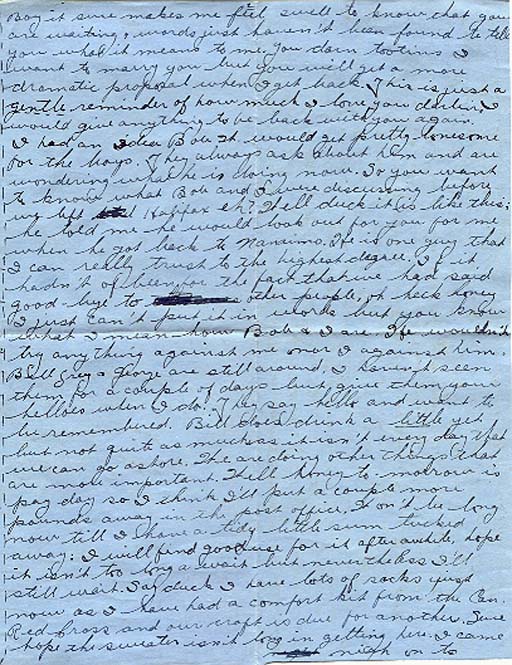 Boy it sure makes me feel swell to know that you
are waiting, words just haven't been found to tell
you what it means to me. you darn tootins I
want to marry you but you will get a more
dramatic proposal when I get back. This is just a
gentle reminder of how much I love you darlin, I
would give anything to be back with you again.
I had an idea Bob it would get pretty lonesome
for the boys. They always ask about him and are
wondering what he is doing now. So you want
to know what Bob and I were discussing before
we left Halifax eh? Well duck it is like this;
he told me he would look out for you for me
when he got back to Nanaimo. He is one guy that
I can really trust to the highest degree. If it
hadn't of been for the fact that we had said
good-bye to other people, oh heck honey
I just can't put it in words but you know
what I mean how Bob & I are. He wouldn't
try anything against me nor I against him.
Bill, Greg & George are still around, I haven't seen
them for a couple of days but give them your
helloes when I do. They say hello and want to
be remembered. Bill does drink a little yet
but not quite as much as it isn't every day that
we can go ashore. The are doing other things that
are more important. Well honey to-morrow is
pay day so I think I'll put a couple more
pounds away in the post office. It won't be long
now till I have a tidy little sum tucked
away: I will find good use for it after awhile, hope
it isn't too long a wait but nevertheless I'll
still wait. Say duck I have lots of socks just
now as I have had a comfort kit from the Can.
Red Cross and our craft is due for another. Sure
hope the sweater isn't long in getting here. I came
nigh on to